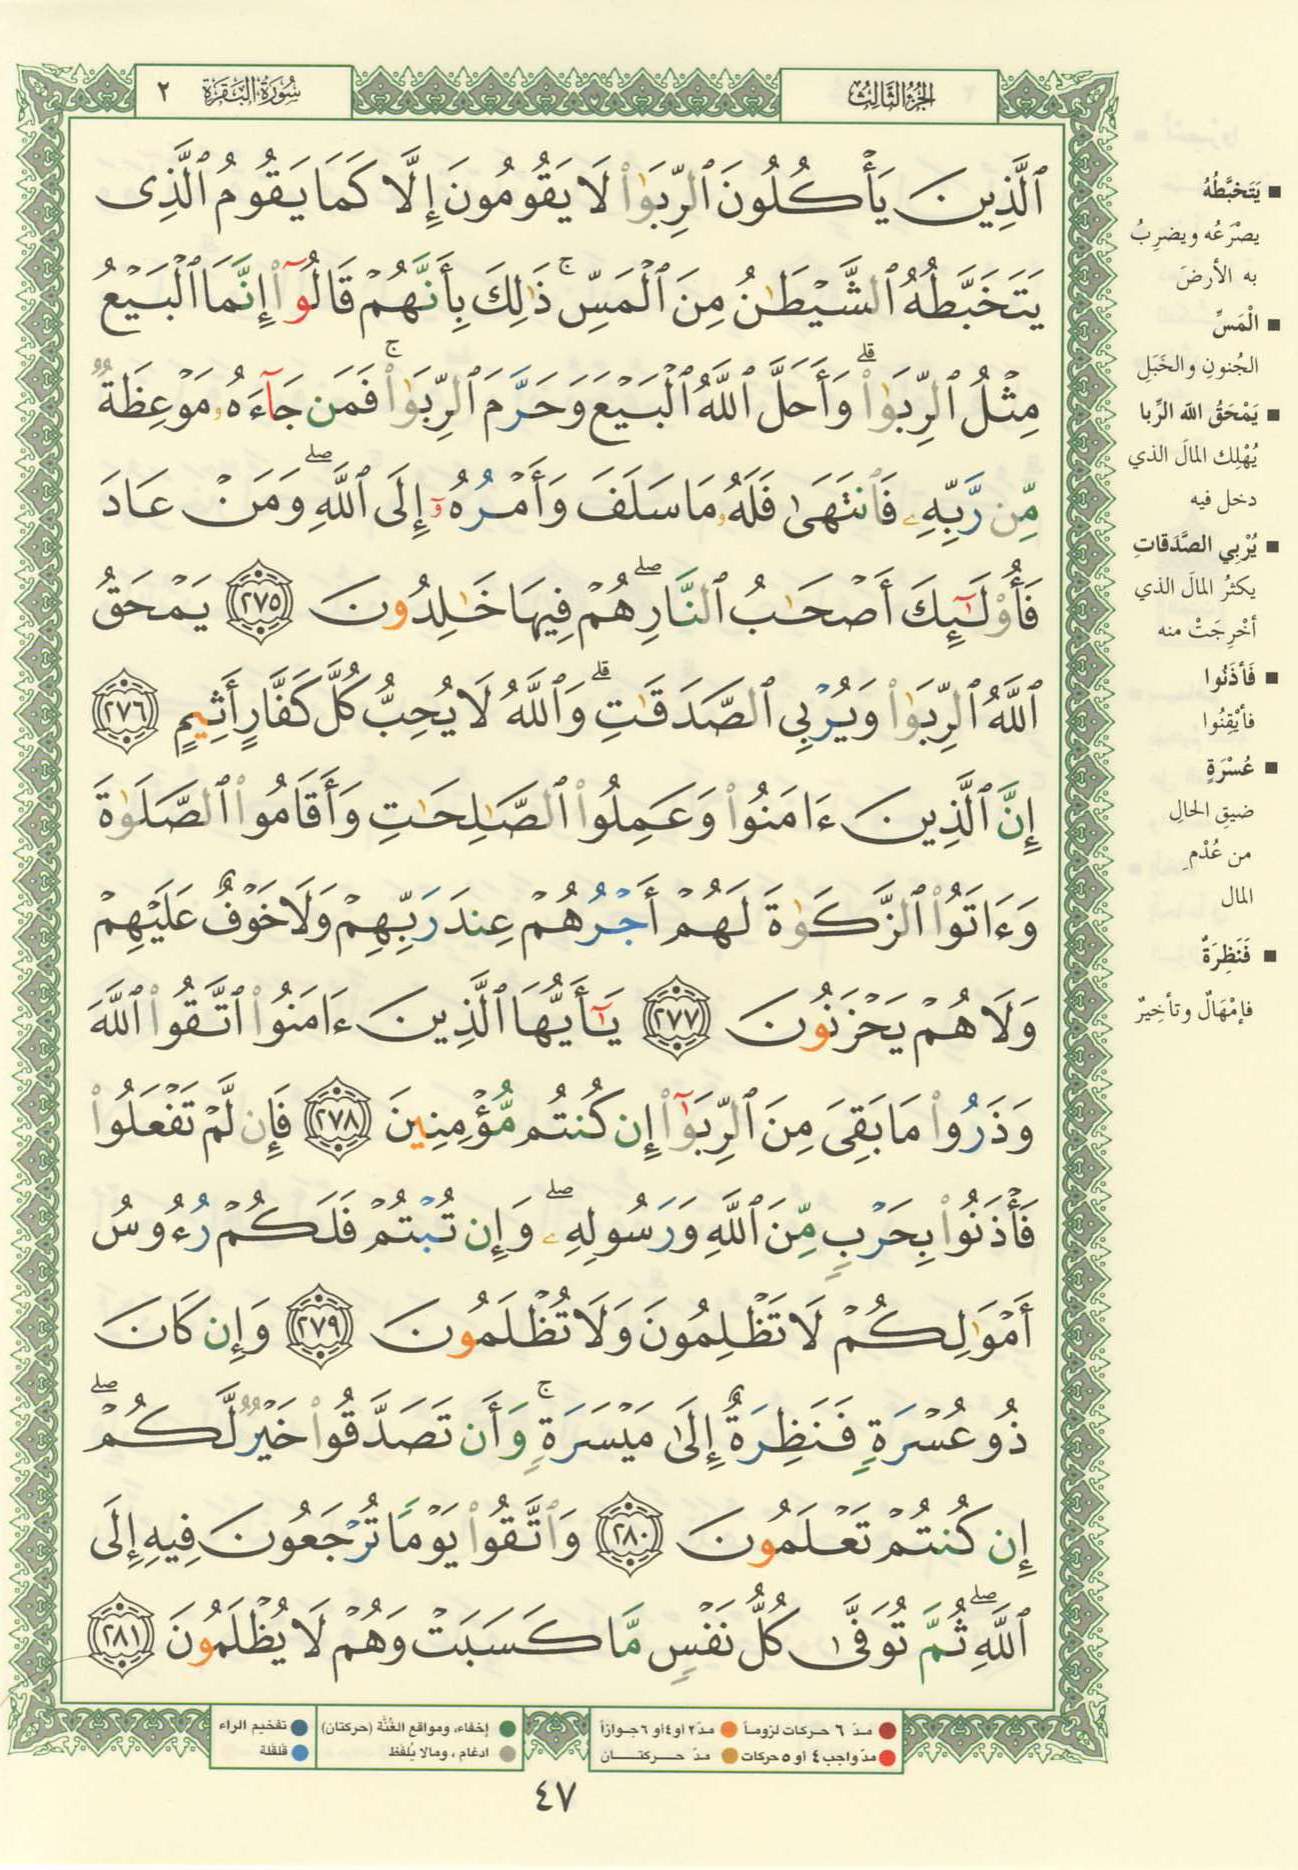 الجزء الثالث
سورة البقرة ٢
ٱلَّذِينَ يَأْكُلُونَ ٱلرِّبَوٰا۟ لَا يَقُومُونَ إِلَّا كَمَا يَقُومُ ٱلَّذِى
يَتَخَبَّطُهُ ٱلشَّيْطَٰنُ مِنَ ٱلْمَسِّ ۚ ذَٰلِكَ بِأَنَّهُمْ قَالُوٓا۟ إِنَّمَا ٱلْبَيْعُ
مِثْلُ ٱلرِّبَوٰا۟ ۗ وَأَحَلَّ ٱللَّهُ ٱلْبَيْعَ وَحَرَّمَ ٱلرِّبَوٰا۟ ۚ فَمَن جَآءَهُۥ مَوْعِظَةٌ
مِّن رَّبِّهِۦ فَٱنتَهَىٰ فَلَهُۥ مَا سَلَفَ وَأَمْرُهُۥٓ إِلَى ٱللَّهِ ۖ وَمَنْ عَادَ
فَأُو۟لَٰٓئِكَ أَصْحَٰبُ ٱلنَّارِ ۖ هُمْ فِيهَا خَٰلِدُونَ ٢٧٥ يَمْحَقُ
ٱللَّهُ ٱلرِّبَوٰا۟ وَيُرْبِى ٱلصَّدَقَٰتِ ۗ وَٱللَّهُ لَا يُحِبُّ كُلَّ كَفَّارٍ أَثِيمٍ ٢٧٦
إِنَّ ٱلَّذِينَ ءَامَنُوا۟ وَعَمِلُوا۟ ٱلصَّٰلِحَٰتِ وَأَقَامُوا۟ ٱلصَّلَوٰةَ
وَءَاتَوُا۟ ٱلزَّكَوٰةَ لَهُمْ أَجْرُهُمْ عِندَ رَبِّهِمْ وَلَا خَوْفٌ عَلَيْهِمْ
وَلَا هُمْ يَحْزَنُونَ ٢٧٧ يَٰٓأَيُّهَا ٱلَّذِينَ ءَامَنُوا۟ ٱتَّقُوا۟ ٱللَّهَ
وَذَرُوا۟ مَا بَقِىَ مِنَ ٱلرِّبَوٰٓا۟ إِن كُنتُم مُّؤْمِنِينَ ٢٧٨ فَإِن لَّمْ تَفْعَلُوا۟
فَأْذَنُوا۟ بِحَرْبٍ مِّنَ ٱللَّهِ وَرَسُولِهِۦ ۖ وَإِن تُبْتُمْ فَلَكُمْ رُءُوسُ
أَمْوَٰلِكُمْ لَا تَظْلِمُونَ وَلَا تُظْلَمُونَ ٢٧٩ وَإِن كَانَ
ذُو عُسْرَةٍ فَنَظِرَةٌ إِلَىٰ مَيْسَرَةٍ ۚ وَأَن تَصَدَّقُوا۟ خَيْرٌ لَّكُمْ ۖ
إِن كُنتُمْ تَعْلَمُونَ ٢٨٠ وَٱتَّقُوا۟ يَوْمًا تُرْجَعُونَ فِيهِ إِلَى
ٱللَّهِ ۖ ثُمَّ تُوَفَّىٰ كُلُّ نَفْسٍ مَّا كَسَبَتْ وَهُمْ لَا يُظْلَمُونَ ٢٨١
■ يَتَخبَّطُهُ
يصْرَعُه ويضرِبُ
به الأرضَ
■ الْمَسِّ
الجُنونِ والخَبَلِ
■ يَمْحَقُ الله الرِّبا
يُهْلِك المالَ الذي
دخل فيه
■ يُرْبِي الصَّدَقاتِ
يكثرُ المالَ الذي
أخْرِجَتْ منه
■ فَأذَنُوا
فأيْقِنُوا
■ عُسْرَةٍ
ضيقِ الحالِ
من عُدْمِ
المال
■ فَنَظِرَةٌ
فإمْهَالٌ وتأخِيرٌ
مدّ ٦ حركات لزوماً ● مدّ٢ أو٤أو ٦جوازاً
مدّ واجب ٤ أو ٥ حركات ● مدّ حــركتــان
إخفاء، ومواقع الغُنَّة (حركتان) ● تفخيم الراء
ادغام ، ومالا يُلفَظ ● قلقلة
٤٧